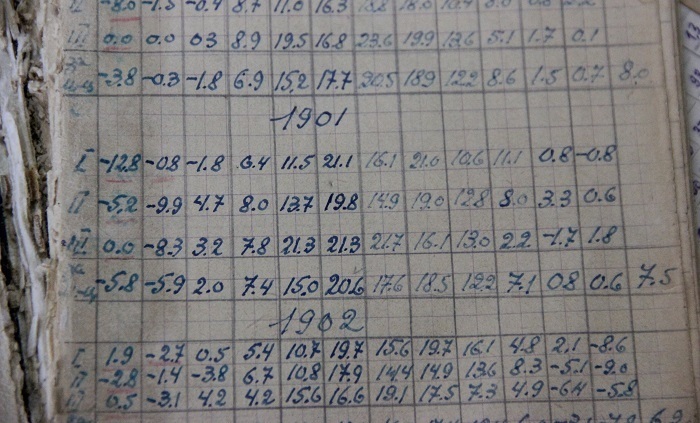 -8.0 -1.5 -0.4 8.7 11.0 16.3
III 0.0 0.0 03 8.9 19.5 16.8 23.6 19.9 13.6 5.1 1.7 0.1
-3.8 -0.3 -1.8 6.9 15.2 17.7 20.5 18.9 12.2 8.6 1.5 0.7 8.0
1901
I -12.8 -0.8 -1.8 6.4 11.5 21.1 16.1 21.0 10.6 11.1 0.8 -0.8
II -5.2 -9.9 4.7 8.0 13.7 19.8 14.9 19.0 12.8 8.0 3.3 0.6
III 0.0 -8.3 3.2 7.8 21.3 21.3 21.7 16.1 13.0 2.2 -1.7 1.8
-5.8 -5.9 2.0 7.4 15.0 20.6 17.6 18.5 12.2 7.1 08 0.6 7.5
1902
I 1.9 -2.7 0.5 5.4 10.7 19.7 15.6 19.7 16.1 4.8 2.1 -8.6
II -2.8 -1.4 -3.8 6.7 10.8 17.9 14.4 14.9 13.6 8.3 -5.1 -9.0
III 0.5 -3.1 4.2 4.2 15.6 16.6 19.1 17.5 7.3 4.9 -6.4 -5.8